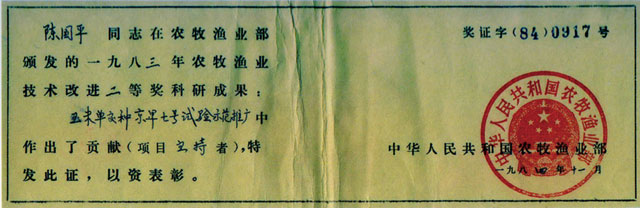 陈国平 同志在农牧渔业部
颁发的一九八三年农牧渔业
技术改进二等奖科研成果：
玉米单交种京早七号试验示范推广中
作出了贡献(项目主持者)，特
发此证，以资表彰。
奖证字(84)0917号
中华人民共和国农牧渔业部
中华人民共和国农牧渔业部
一九八四年十一月